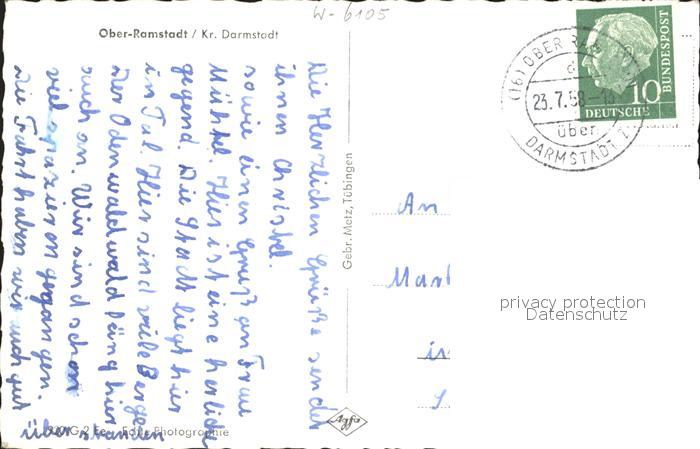 W-6105
Ober-Ramstadt / Kr. Darmstadt
Die Herzlichen Grüße sendet
ihnen Christel.
sowie einen Gruß an Frau
Hier ist eine herliche
gegend. Die Stadt liegt hier
in Tal Hier sind viele Berge
Der Odenwaldwald fäng hier
auch an. Wir sind schon
viel spazieren gegangen.
Die Fahrt haben wir auch gut
überstanden
Echte Photographie
Gebr. Metz, Tübingen
Agfa
(16) OBER
23.7.58
über
DARMSTADT 2
10
DEUTSCHE
BUNDESPOST
An
privacy protection
Datenschutz